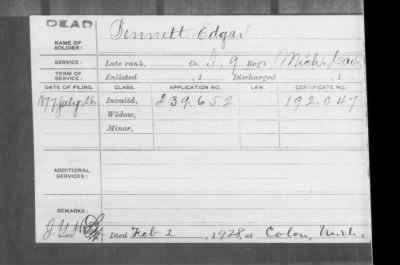 DEAD
NAME OF SOLDIER: Bennett Edgar
SERVICE: Late rank, Co. I, 9 Reg't Mich. Cav.
TERM OF SERVICE: Enlisted , 1 Discharged , 1
DATE OF FILING. CLASS. APPLICATION NO. LAW. CERTIFICATE NO.
1877 July 26 Invalid, 239.652 192.047
Widow,
Minor,
ADDITIONAL SERVICES:
REMARKS:
Died Feb 2, 1928, at Colon, Mich.